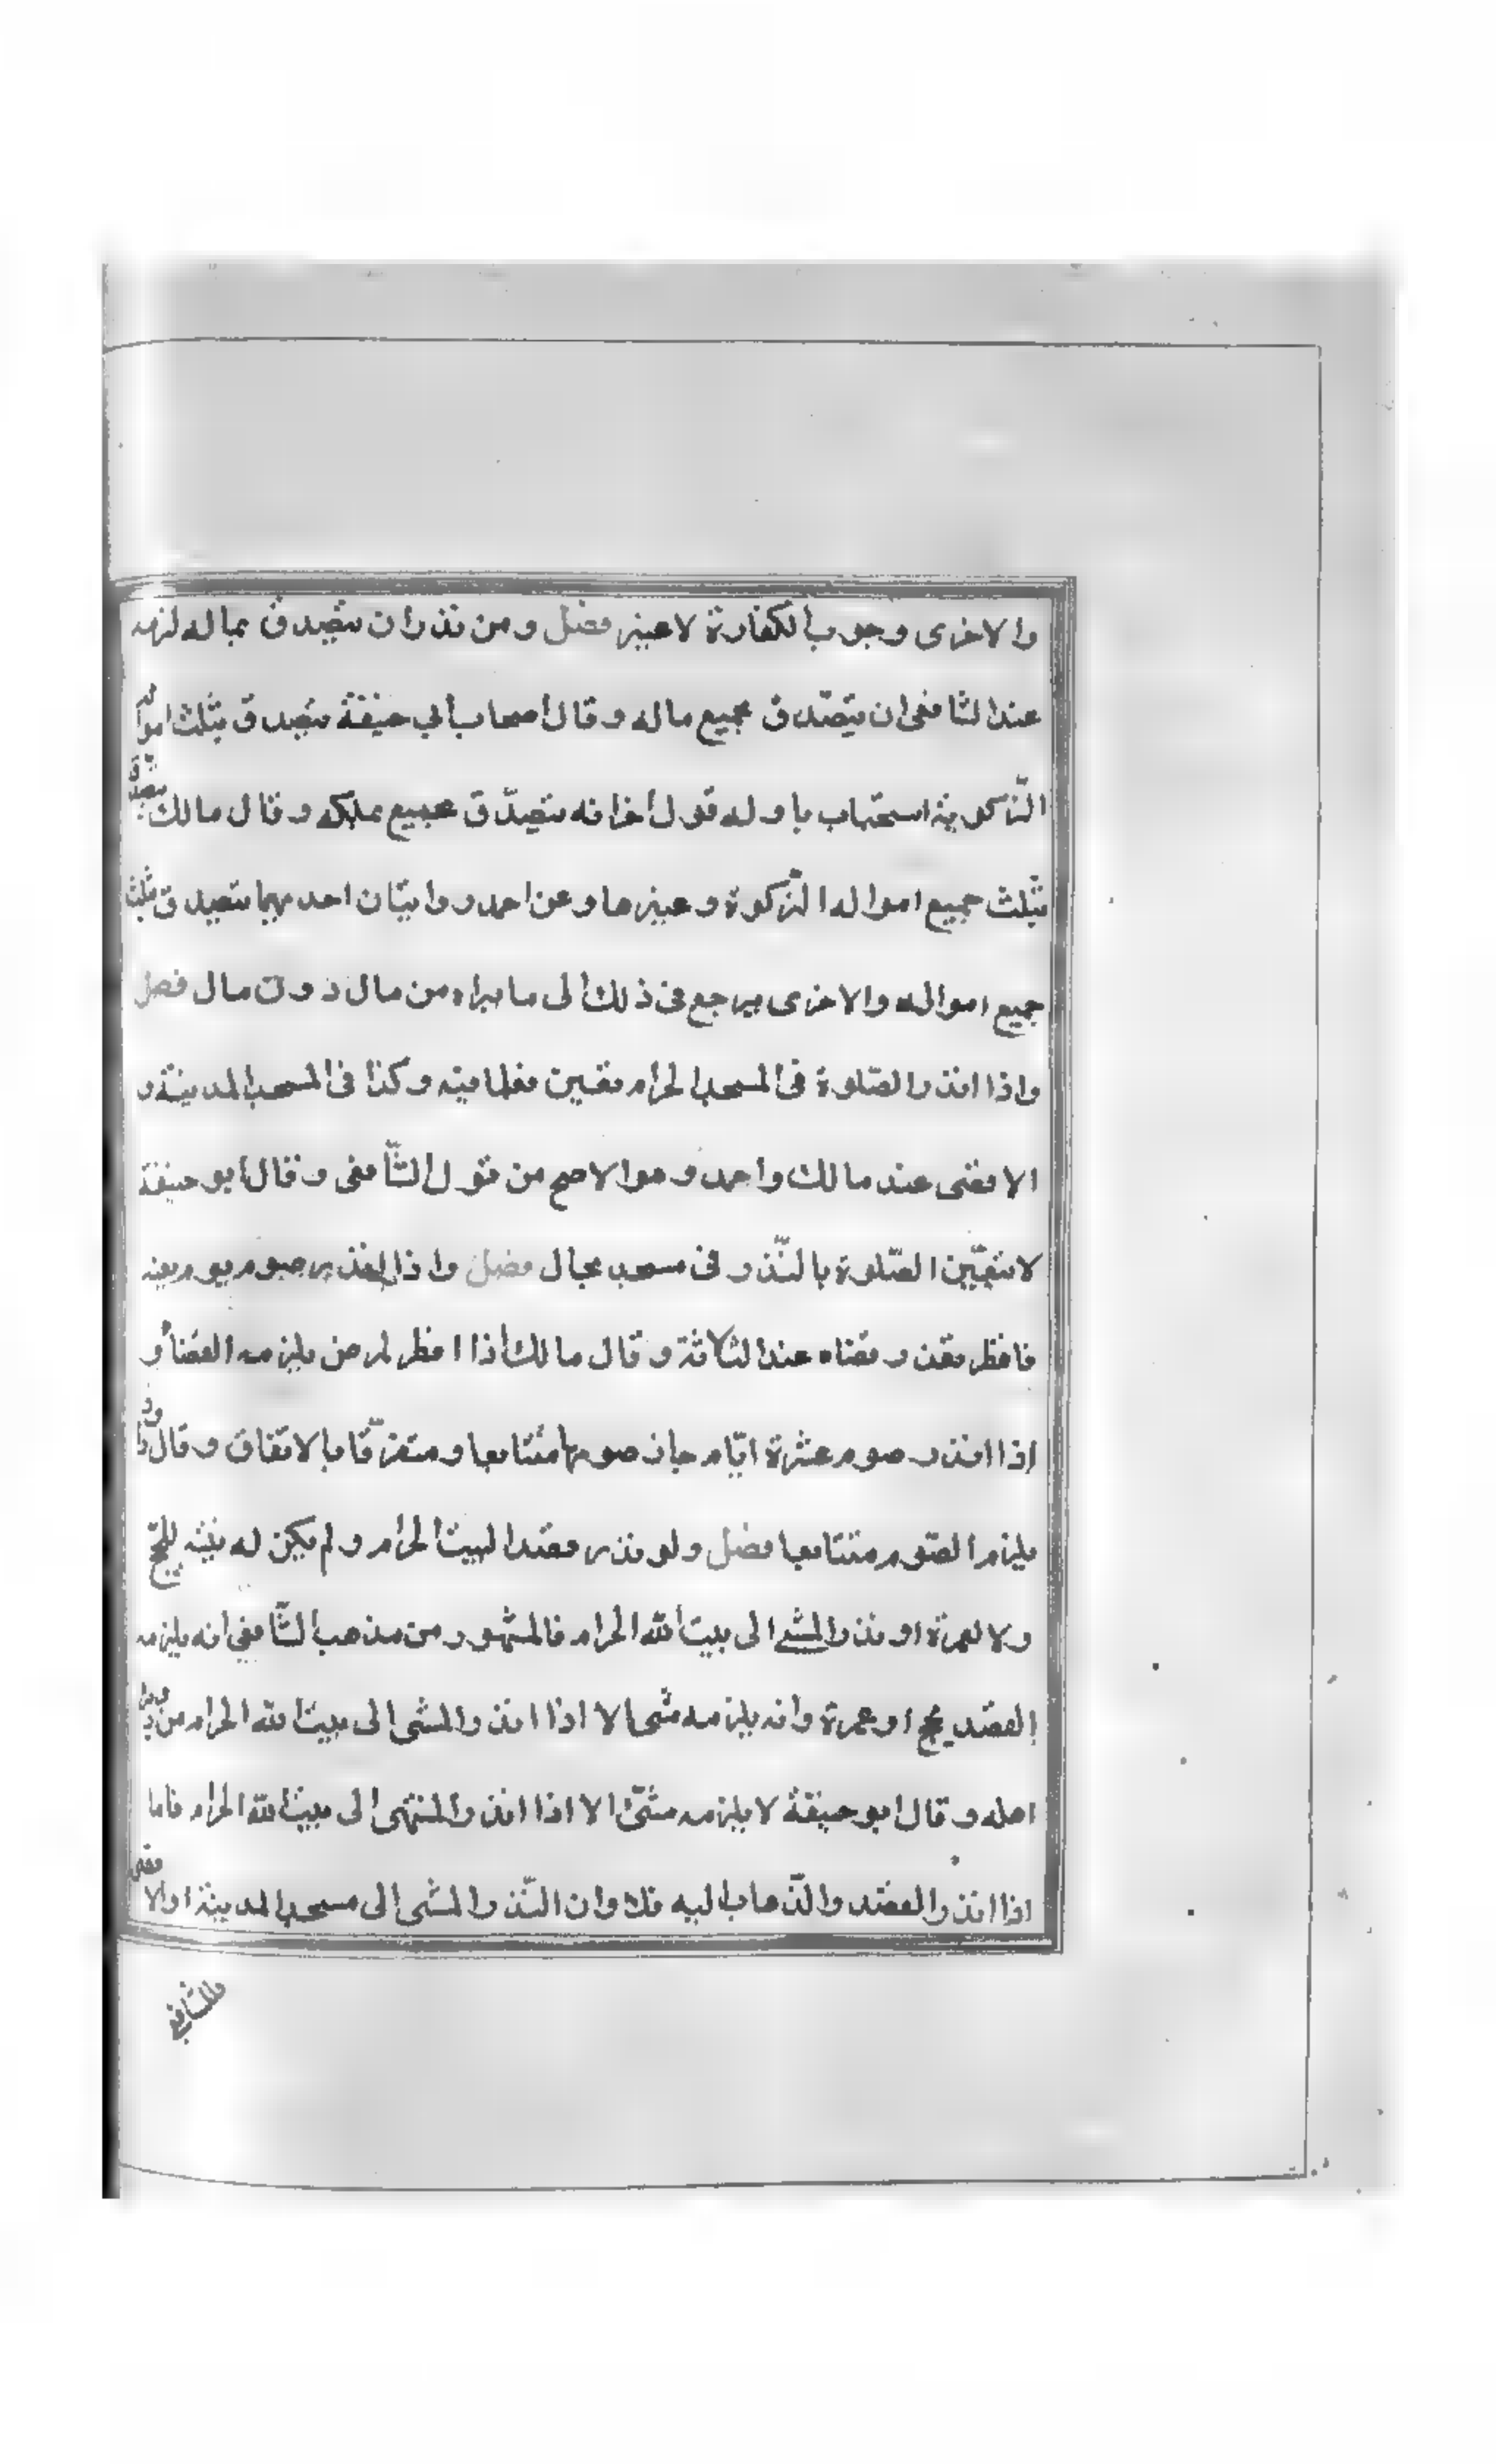 والاخرى وجوب الكفارة لا غير فصل ومن نذر ان يتصدق بماله لزمه
عند الشافعى ان يتصدق بجميع ماله وقال اصحاب ابي حنيفة يتصدق بثلث امواله
الزكوية استحبابا وله قول اخر انه يتصدق بجميع ملكه وقال مالك يتصدق
بثلث جميع امواله الزكوة وغيرها وعن احمد روايتان احدهما يتصدق بثلث
جميع امواله والاخرى يرجع فى ذلك الى ما يراه من مال دون مال فصل
واذا انذر الصلوة فى المسجد الحرام تعين فعلها فيه وكذا فى المسجد المدينة و
الاقصى عند مالك واحمد وهو الاصح من قول الشافعى وقال ابو حنيفة
لا تتعين الصلوة بالنذر فى مسجد بحال فصل واذا نذر صوم يوم بعينه
فافطر بعذر قضاه عند الثلاثة وقال مالك اذا افطر لمرض يلزمه القضاء و
اذا انذر صوم عشرة ايام جاز صومها متتابعا ومتفرقا بالاتفاق وقال داود
يلزم الصوم متتابعا فصل ولو نذر قصد البيت الحرام ولم يكن له نية للحج
ولا لعمرة او نذر المشي الى بيت الله الحرام فالمشهور من مذهب الشافعى انه يلزمه
القصد بحج او عمرة وانه يلزمه مشى الا اذا انذر المشى الى بيت الله الحرام من
اهله وقال ابو حنيفة لا يلزمه شئ الا اذا انذر المشى الى بيت الله الحرام فاما
اذا انذر القصد والذهاب اليه فلا وان النذر المشى الى مسجد المدينة او الاقصى
فللشافعي